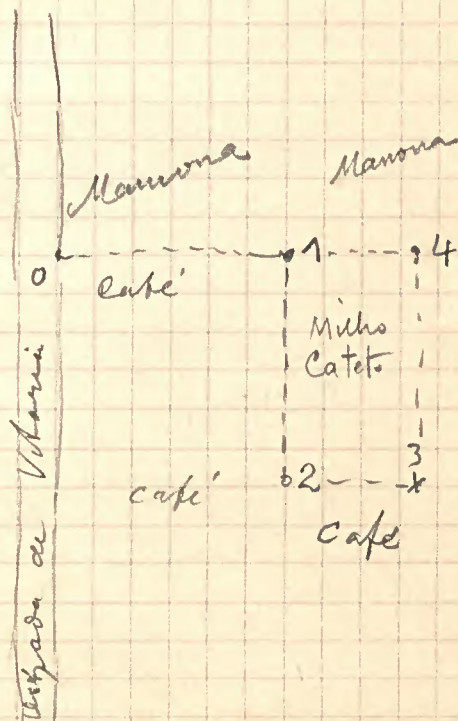 Mamona
Mamona
0
1
4
Café
Milho
Cateto
3
café
2
Café
Estrada de Vitoria